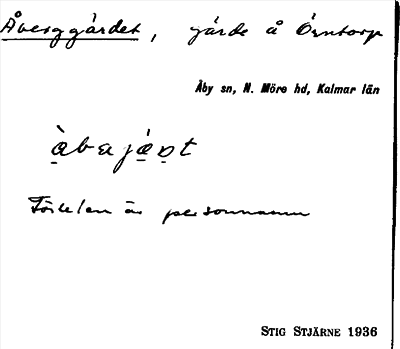 Åberggärdet, gärde å Örntorp
Åby sn, N. Möre hd, Kalmar län
Förleden är personnamn
STIG STJÄRNE 1936